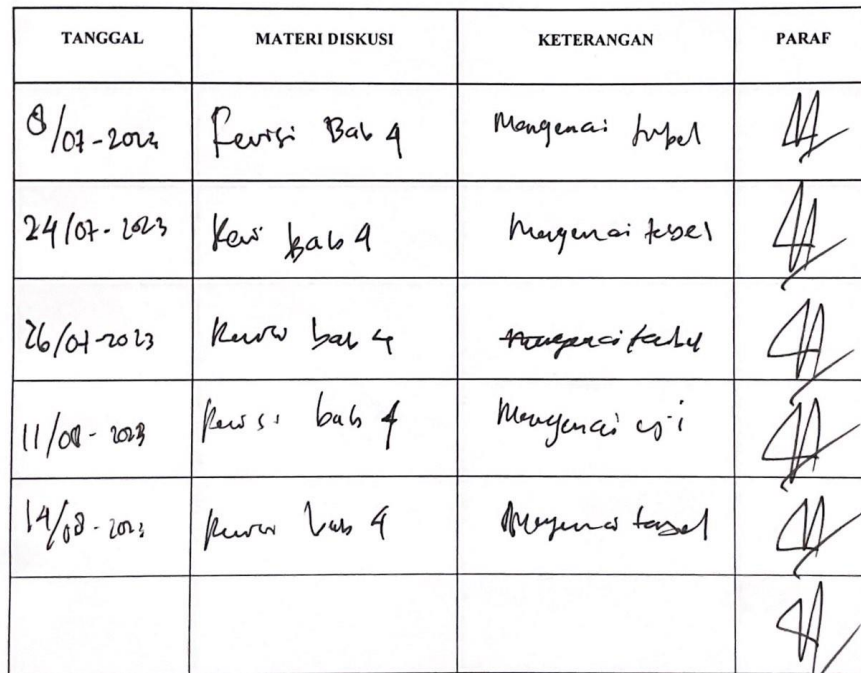 TANGGAL MATERI DISKUSI KETERANGAN PARAF
8/07-2023 Revisi Bab 4 Mengenai tabel
24/07-2023 Revisi bab 4 Mengenai tabel
26/07-2023 Revisi bab 4 mengenai tabel
11/08-2023 Revisi bab 4 Mengenai uji
14/08-2023 Revisi bab 4 Mengenai tabel